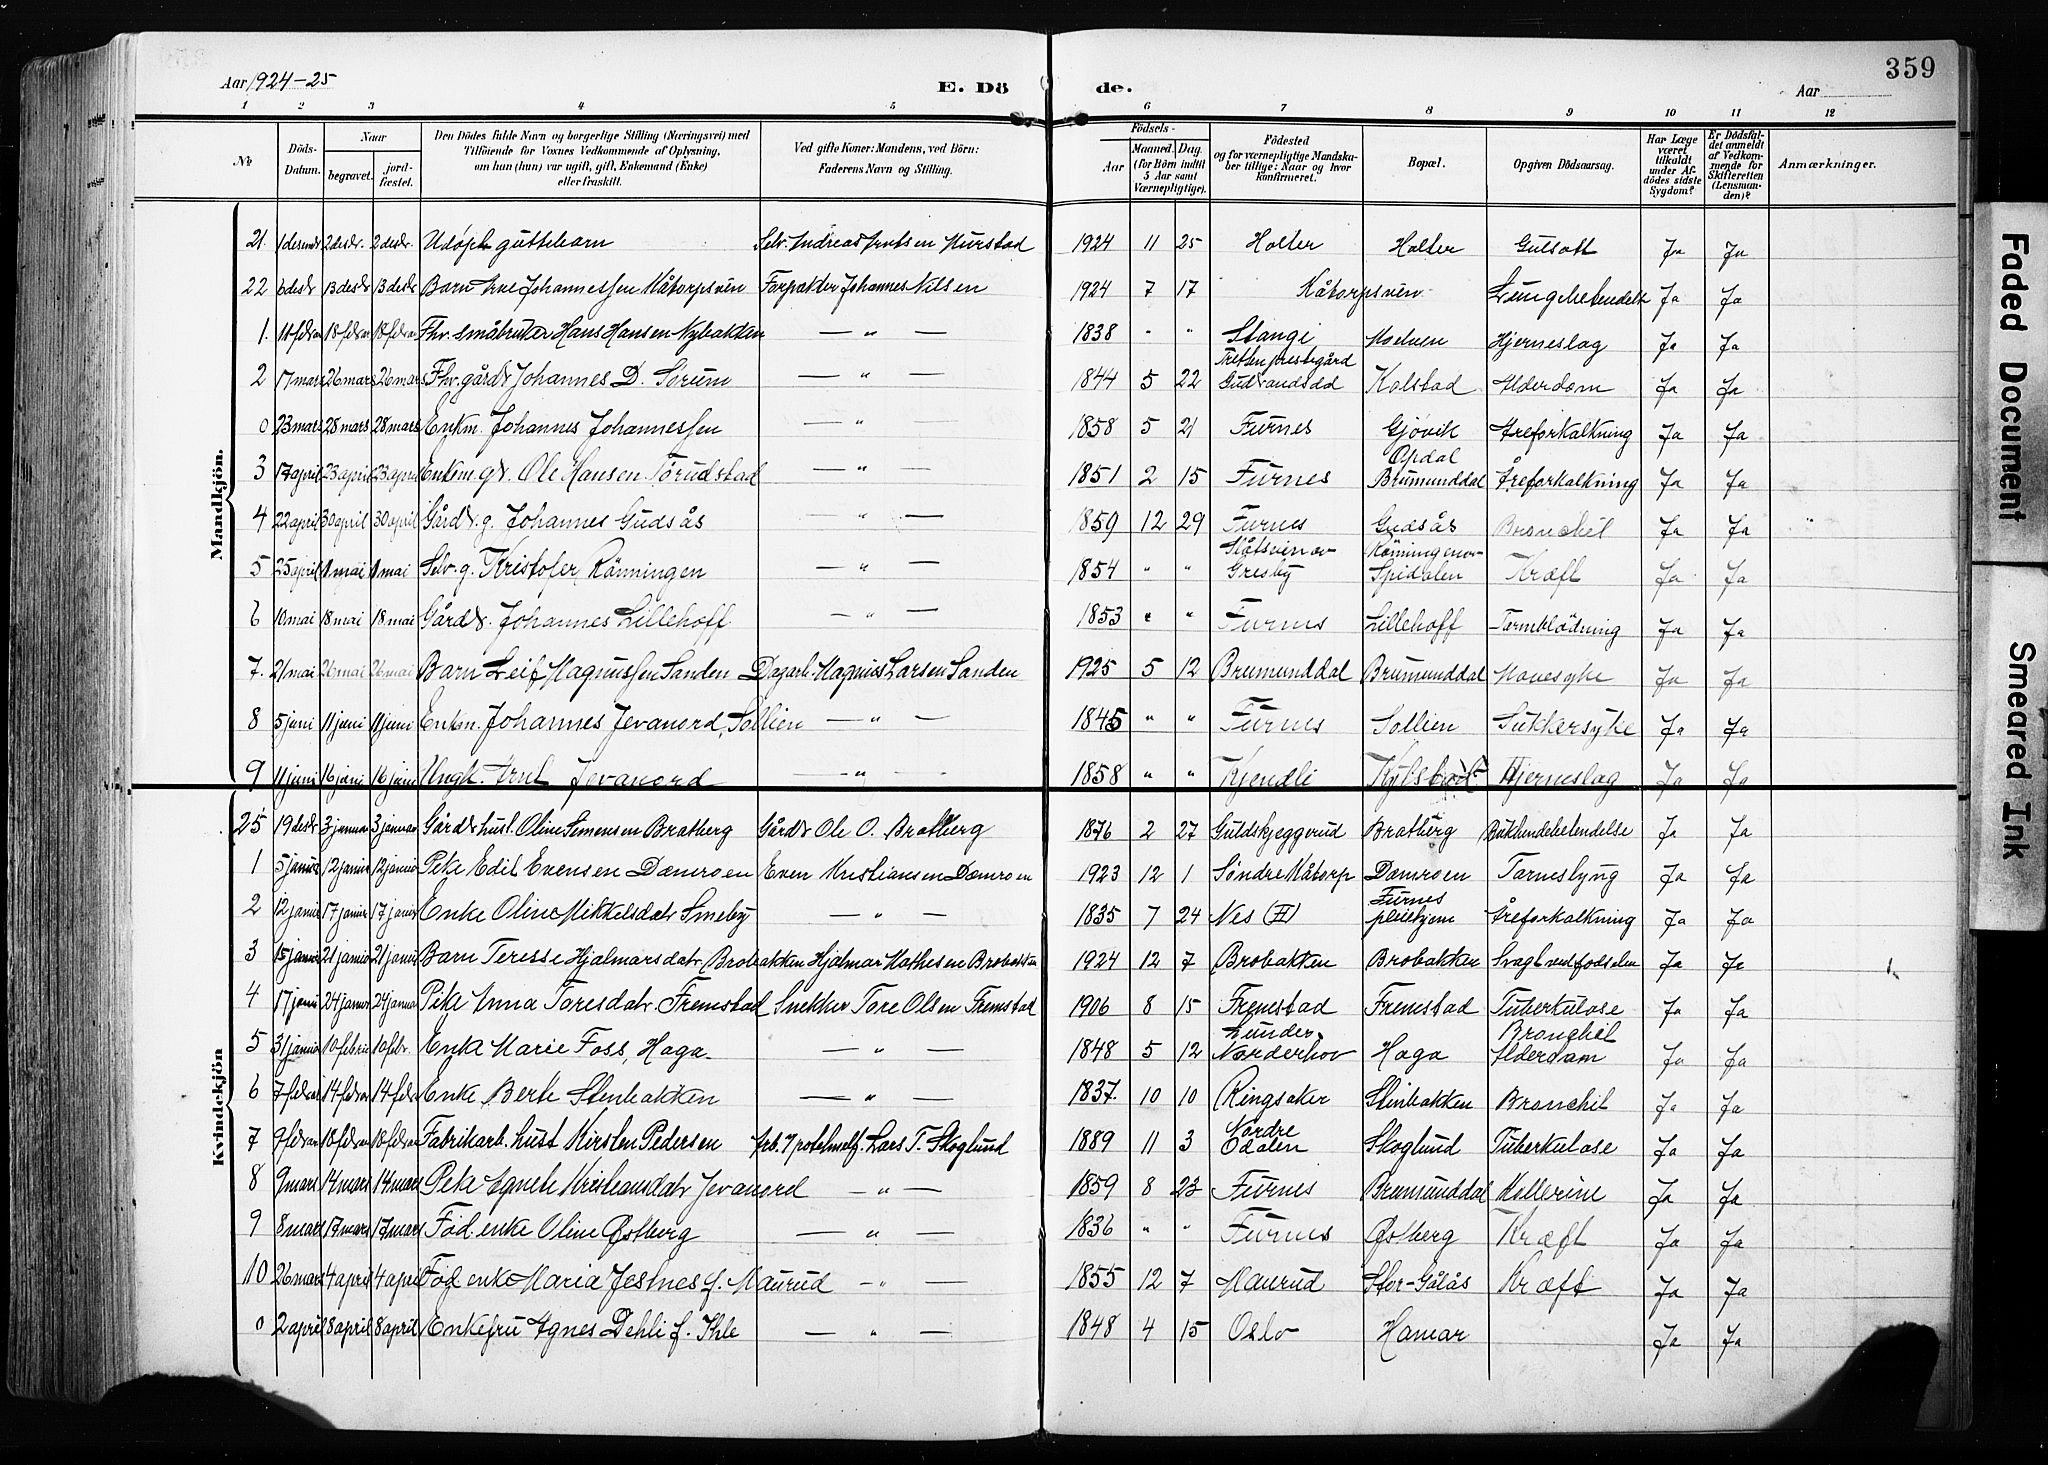 359
Aar 1924-25
E. Döde.
Aar
1 2 3 4 5 6 7 8 9 10 11 12
№
Döds-Datum.
Naar
begravet.
jord-fæstet.
Den Dödes fulde Navn og borgerlige Stilling (Næringsvei) med
Tilföiende for Voxnes Vedkommende af Oplysning,
om han (hun) var ugift, gift, Enkemand (Enke)
eller fraskilt.
Ved gifte Koner: Mandens, ved Börn:
Faderens Navn og Stilling.
Födsels-
Aar
Maaned. Dag.
(for Börn indtil
5 Aar samt
Værnepligtige).
Födested
og for værnepligtige Mandska-
ber tillige: Naar og hvor
konfirmeret.
Bopæl.
Opgiven Dödsaarsag.
Har Læge
været
tilkaldt
under Af-
dödes sidste
Sygdom?
Er Dödsfal-
det anmeldt
af Vedkom-
mende for
Skifteretten
(Lensman-
den)?
Anmærkninger.
Mandkjön.
21. 1 desembr 2 desbr. 2 desbr. Udøpt guttebarn Selv. Andreas Knutsen Kurstad 1924 11 25 Holter Holter Gulsott Ja Ja
22 6 desbr 13 desbr 13 desbr Barn Arne Johannessen Kåtorpsven Forpakter Johannes Nilsen 1924 7 17 Kåtorpsven Lungebetendelse Ja Ja
1. 11 febr 18 febr 18 febr Fhv. småbruker Hans Hansen Nybakken — " — 1838 " " Stange Moelven Hjerneslag Ja Ja
2 17 mars 26 mars 26 mars Fhv. gårdbr Johannes D. Sörum — " — 1844 5 22 Tretten prestegård Gudbrandsdal Kolstad Alderdom Ja Ja
0 23 mars 28 mars 28 mars Enkm. Johannes Johannessen — " — 1858 5 21 Furnes Gjövik Åreforkalkning Ja Ja
3 17 april 23 april 23 april Enkm. gbr. Ole Hansen Törudstad — " — 1851 2 15 Furnes Opdal Brumunddal Åreforkalkning Ja Ja
4 22 april 30 april 30 april Gårdbr. g. Johannes Gudsås — " — 1859 12 29 Furnes Gudsås Bronchit Ja Ja
5 25 april 1 mai 1 mai Selv. g. Kristofer Rönningen — " — 1854 " " Gresby Rönningen Spidalen Kræft Ja Ja
6 10 mai 18 mai 18 mai Gårdbr. Johannes Lillehoff — " — 1853 " " Furnes Lillehoff Tarmblödning Ja Ja
7. 21 mai 26 mai 26 mai Barn Leif Magnussen Sanden Dagarb. Magnus Larsen Sanden 1925 5 12 Brumunddal Brumunddal Mavesyke Ja Ja
8 5 juni 11 juni 11 juni Enkm. Johannes Jevanord, Sollien — " — 1845 " " Furnes Sollien Sukkersyke Ja Ja
9 11 juni 16 juni 16 juni Ungk. Arnt Jevanord — " — 1858 " " Kjendli Kylstad Hjerneslag Ja Ja
Kvindekjön
25 19 desbr 3 januar 3 januar Gårdbr hust. Oline Simensen Bratberg Gårdbr Ole O. Bratberg 1876 2 27 Guldskjeggerud Bratberg Bukhindebetendelse Ja Ja
1 5 januar 12 januar 12 januar Pike Edit Evensen Damroen Even Kristiansen Damroen 1923 12 1 Søndre Kåtorp Damroen Tarmslyng Ja Ja
2 12 januar 17 januar 17 januar Enke Oline Mikkelsdatr Smeby — " — 1835 7 24 Nes (H) Furnes pleiehjem Åreforkalkning Ja Ja
3 15 januar 21 januar 21 januar Barn Teresse Hjalmarsdatr Brobakken Hjalmar Mathesen Brobakken 1924 12 7 Brobakken Brobakken Svagt ved fødselen Ja Ja
4 17 januar 24 januar 24 januar Pike Anna Toresdatr. Fremstad Snekker Tore Olsen Fremstad 1906 8 15 Fremstad Fremstad Tuberkulose Ja Ja
5 31 januar 10 febr 10 febr. Enke Marie Foss, Haga — " — 1848 5 12 Lunder, Norderhov Haga Bronchit Alderdom Ja Ja
6 7 febr 14 febr 14 febr Enke Berte Stenbakken — " — 1837. 10 10 Ringsaker Stenbakken Bronchit Ja Ja
7 9 febr 18 febr 18 febr Fabrikarb. hust Kirsten Pedersen Lars T. Skoglund 1889 11 3 Nordre Odalen Skoglund Tuberkulose Ja Ja
8 9 mars 14 mars 14 mars Pike Agnete Kristiansdatr Jevanord — " — 1859 8 23 Furnes Brumunddal Ja Ja
9 8 mars 17 mars 17 mars Fød. enke Oline Østberg — " — 1836 " " Furnes Østberg Kræft Ja Ja
10 26 mars 4 april 4 april Fød. enke Maria Jesnes f. Maurud - " — 1855 12 7 Maurud Stor-Gålås Kræft Ja Ja
0 2 april 8 april 8 april Enkefru Agnes Dehli f. Ihle — " — 1848 4 15 Oslo Hamar Ja Ja
Faded Document
Smeared Ink